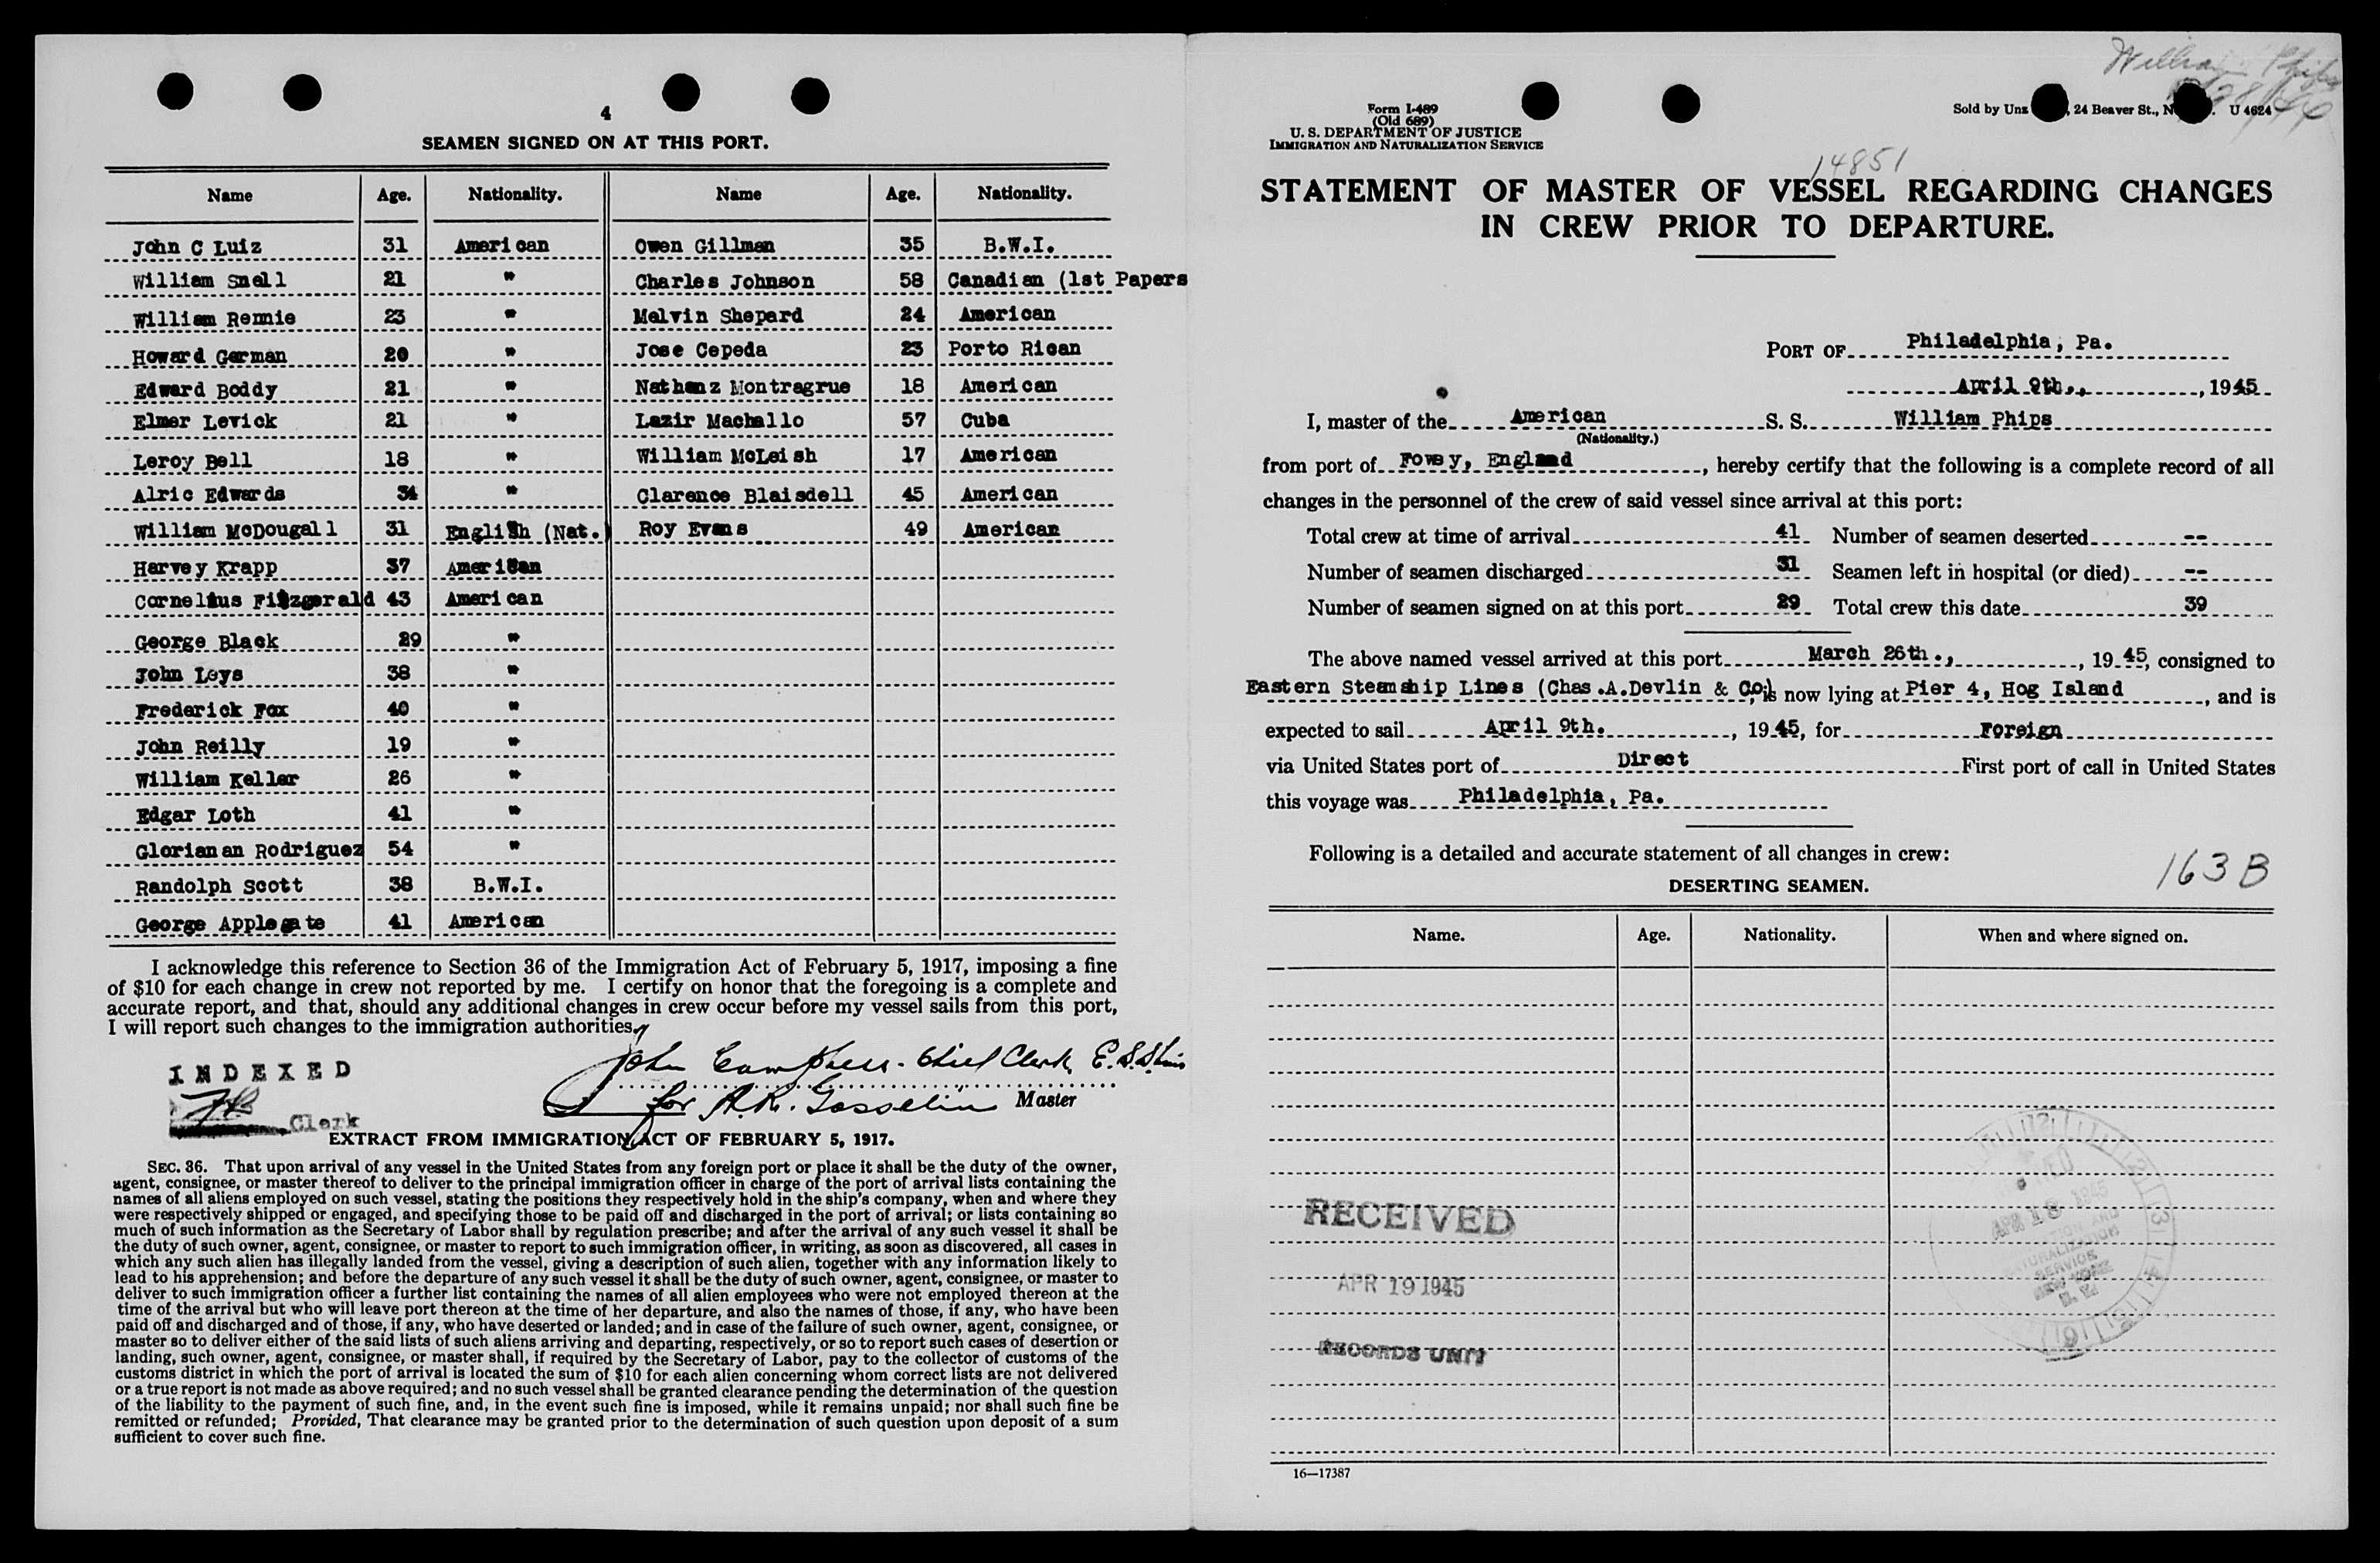 4
SEAMEN SIGNED ON AT THIS PORT.
Name Age. Nationality. Name Age. Nationality.
John C Luiz 31 American Owen Gillman 35 B.W.I.
William Snell 21 " Charles Johnson 58 Canadian (1st Papers
William Rennie 23 " Melvin Shepard 24 American
Howard German 20 " Jose Cepeda 23 Porto Rican
Edward Boddy 21 " Nathanz Montragrue 18 American
Elmer Levick 21 " Lazir Machallo 57 Cuba
Leroy Bell 18 " William McLeish 17 American
Alric Edwards 34 " Clarence Blaisdell 45 American
William McDougall 31 English (Nat.) Roy Evans 49 American
Harvey Krapp 37 American
Cornelius Fitzgerald 43 American
George Black 29 "
John Leys 38 "
Frederick Fox 40 "
John Reilly 19 "
William Keller 26 "
Edgar Loth 41 "
Glorianan Rodriguez 54 "
Randolph Scott 38 B.W.I.
George Applegate 41 American
I acknowledge this reference to Section 36 of the Immigration Act of February 5, 1917, imposing a fine
of $10 for each change in crew not reported by me. I certify on honor that the foregoing is a complete and
accurate report, and that, should any additional changes in crew occur before my vessel sails from this port,
I will report such changes to the immigration authorities.
INDEXED
Clerk
John Campbell - Chief Clerk, E.S.S. Lines
for A.R. Gosselin Master
EXTRACT FROM IMMIGRATION ACT OF FEBRUARY 5, 1917.
SEC. 36. That upon arrival of any vessel in the United States from any foreign port or place it shall be the duty of the owner,
agent, consignee, or master thereof to deliver to the principal immigration officer in charge of the port of arrival lists containing the
names of all aliens employed on such vessel, stating the positions they respectively hold in the ship's company, when and where they
were respectively shipped or engaged, and specifying those to be paid off and discharged in the port of arrival; or lists containing so
much of such information as the Secretary of Labor shall by regulation prescribe; and after the arrival of any such vessel it shall be
the duty of such owner, agent, consignee, or master to report to such immigration officer, in writing, as soon as discovered, all cases in
which any such alien has illegally landed from the vessel, giving a description of such alien, together with any information likely to
lead to his apprehension; and before the departure of any such vessel it shall be the duty of such owner, agent, consignee, or master to
deliver to such immigration officer a further list containing the names of all alien employees who were not employed thereon at the
time of the arrival but who will leave port thereon at the time of her departure, and also the names of those, if any, who have been
paid off and discharged and of those, if any, who have deserted or landed; and in case of the failure of such owner, agent, consignee, or
master so to deliver either of the said lists of such aliens arriving and departing, respectively, or so to report such cases of desertion or
landing, such owner, agent, consignee, or master shall, if required by the Secretary of Labor, pay to the collector of customs of the
customs district in which the port of arrival is located the sum of $10 for each alien concerning whom correct lists are not delivered
or a true report is not made as above required; and no such vessel shall be granted clearance pending the determination of the question
of the liability to the payment of such fine, and, in the event such fine is imposed, while it remains unpaid; nor shall such fine be
remitted or refunded; Provided, That clearance may be granted prior to the determination of such question upon deposit of a sum
sufficient to cover such fine.
William Phips
Form I-489
(Old 689)
U. S. DEPARTMENT OF JUSTICE
IMMIGRATION AND NATURALIZATION SERVICE
Sold by Unz 24 Beaver St., N U 4624
14851
STATEMENT OF MASTER OF VESSEL REGARDING CHANGES
IN CREW PRIOR TO DEPARTURE.
PORT OF Philadelphia, Pa.
April 9th., 1945
I, master of the American S. S. William Phips
(Nationality.)
from port of Fowey, England, hereby certify that the following is a complete record of all
changes in the personnel of the crew of said vessel since arrival at this port:
Total crew at time of arrival 41 Number of seamen deserted --
Number of seamen discharged 31 Seamen left in hospital (or died) --
Number of seamen signed on at this port 29 Total crew this date 39
The above named vessel arrived at this port March 26th., 1945, consigned to
Eastern Steamship Lines (Chas.A.Devlin & Co.), is now lying at Pier 4, Hog Island, and is
expected to sail April 9th., 1945, for Foreign
via United States port of Direct First port of call in United States
this voyage was Philadelphia, Pa.
Following is a detailed and accurate statement of all changes in crew:
163B
DESERTING SEAMEN.
Name. Age. Nationality. When and where signed on.
RECEIVED
APR 19 1945
RECORDS UNIT
APR 18 1945
NATURALIZATION
SERVICE
NEW YORK
N. Y.
16—17387